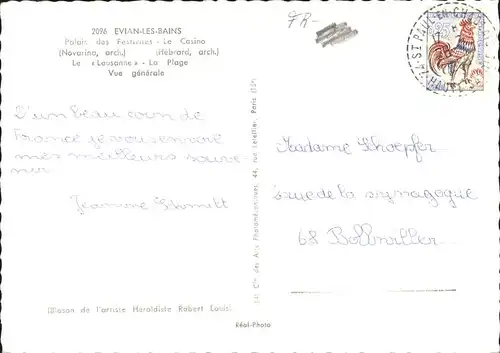 2096 EVIAN-LES-BAINS
Palais des Festivités - Le Casino
(Novarina, arch.) (Hébrard, arch.)
Le « Lausanne » - La Plage
Vue générale
FR-
D'un beau coin de
France je vous envoie
mes meilleurs souve-
nir
Jeannine Schmitt
(Blason de l'artiste Héraldiste Robert Louis)
Cie des Arts Photomécaniques, 44, rue Letellier, Paris (15e)
Réal-Photo
ST PAUL EN CHABLAIS
Madame Schoepfer
rue de la synagogue
68 Bollwiller